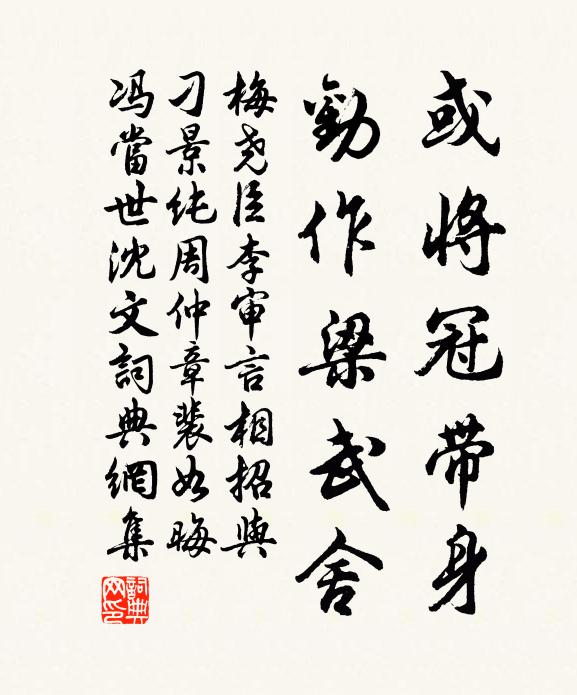 或將冠帶身
勸作梁武舍
梅尧臣李审言相招與
刁景纯周仲章裴如晦
冯當世沈文詞典網集
詞典
网印